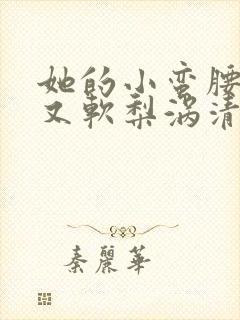 她的小蛮腰
又軟梨涡清
秦麗華